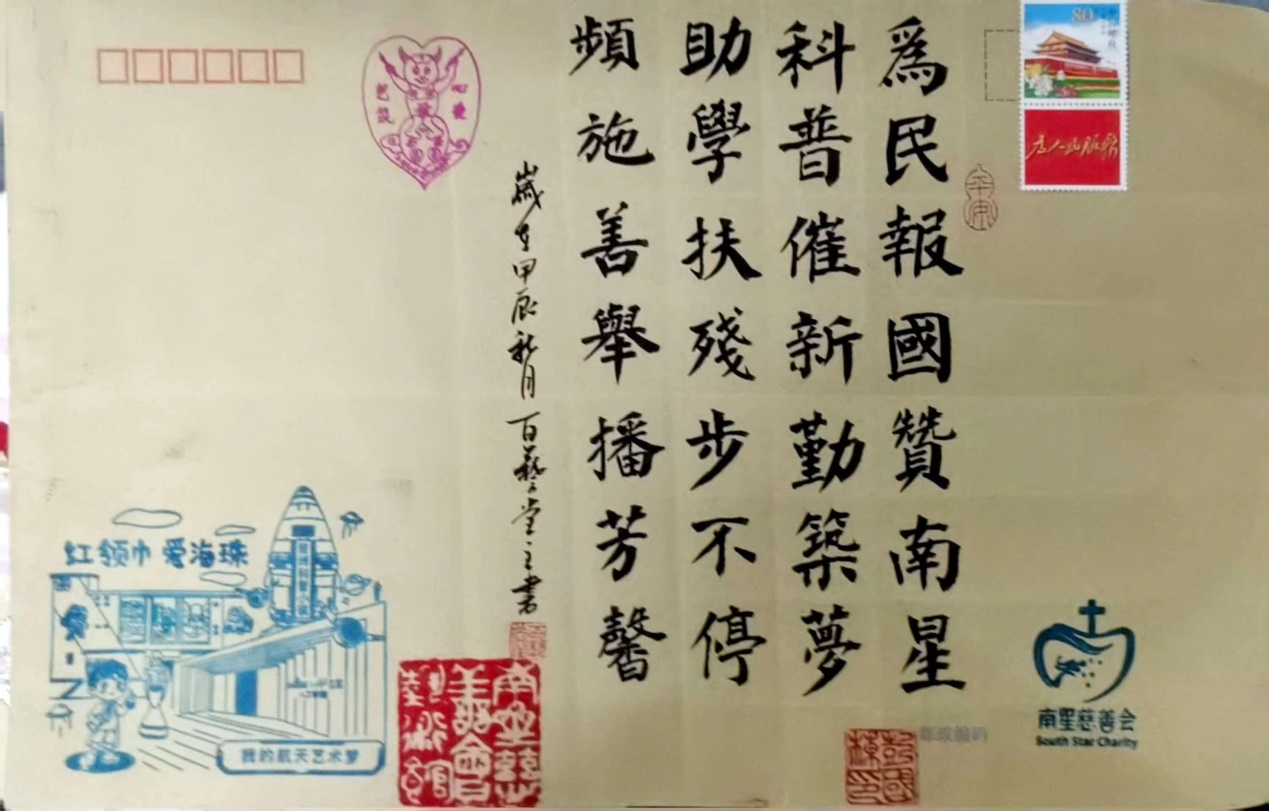 爲民報國贊南星
科普催新勤築夢
助學扶殘步不停
頻施善舉播芳馨
歲在甲辰秋月 百藝堂主書
80
为人民服务
红领巾 爱海珠
我的航天艺术梦
邮政编码
南星慈善会
South Star Charity